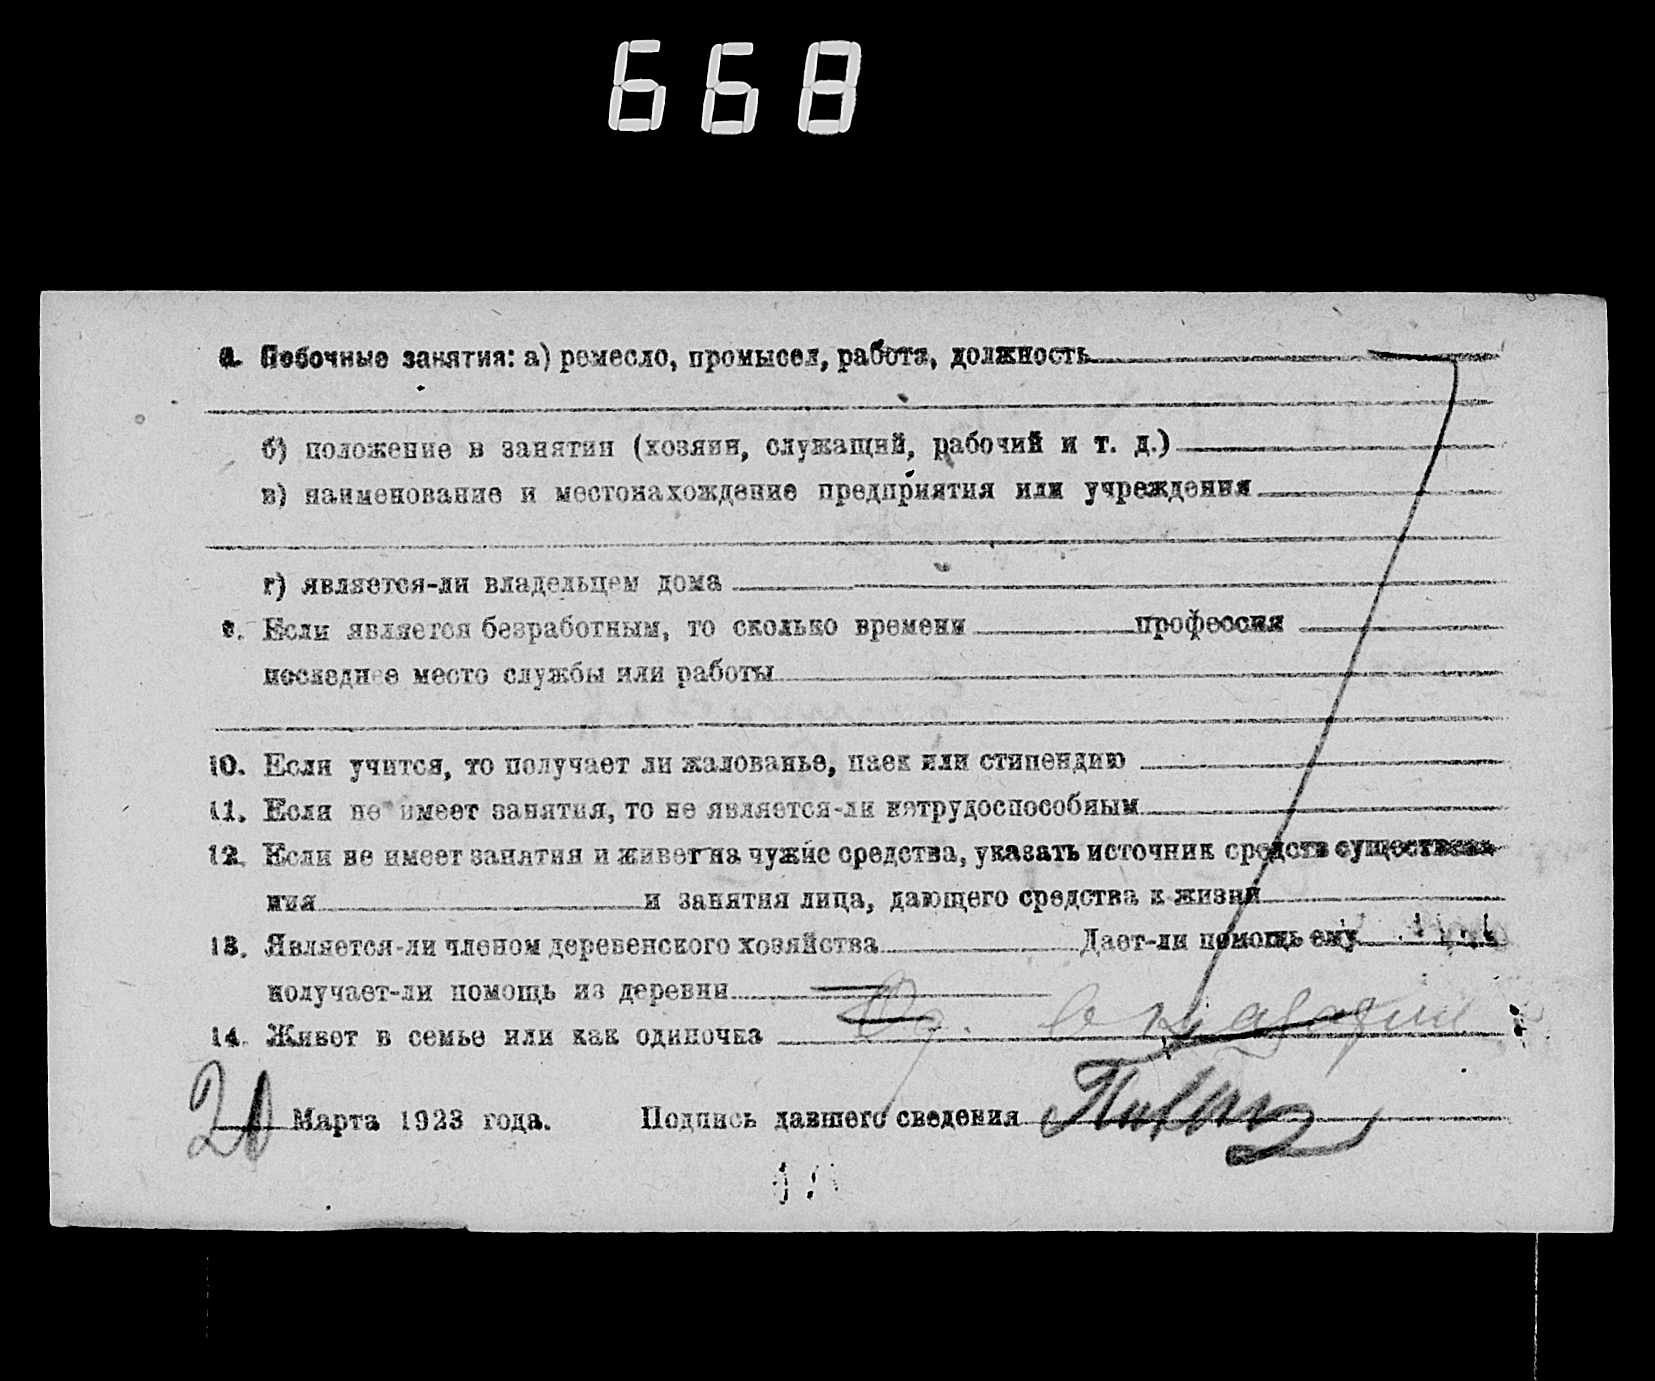 668
8. Побочные занятия: а) ремесло, промысел, работа, должность
б) положение в занятии (хозяин, служащий, рабочий и т. д.)
в) наименование и местонахождение предприятия или учреждения
г) является-ли владельцем дома
9. Если является безработным, то сколько времени профессия
последнее место службы или работы
10. Если учится, то получает ли жалованье, паек или стипендию
11. Если не имеет занятия, то не является-ли нетрудоспособным
12. Если не имеет занятия и живет на чужие средства, указать источник средств существова-
ния и занятия лица, дающего средства к жизни
13. Является-ли членом деревенского хозяйства Дает-ли помощь ему
получает-ли помощь из деревни
14. Живет в семье или как одиночка
Марта 1923 года. Подпись давшего сведения